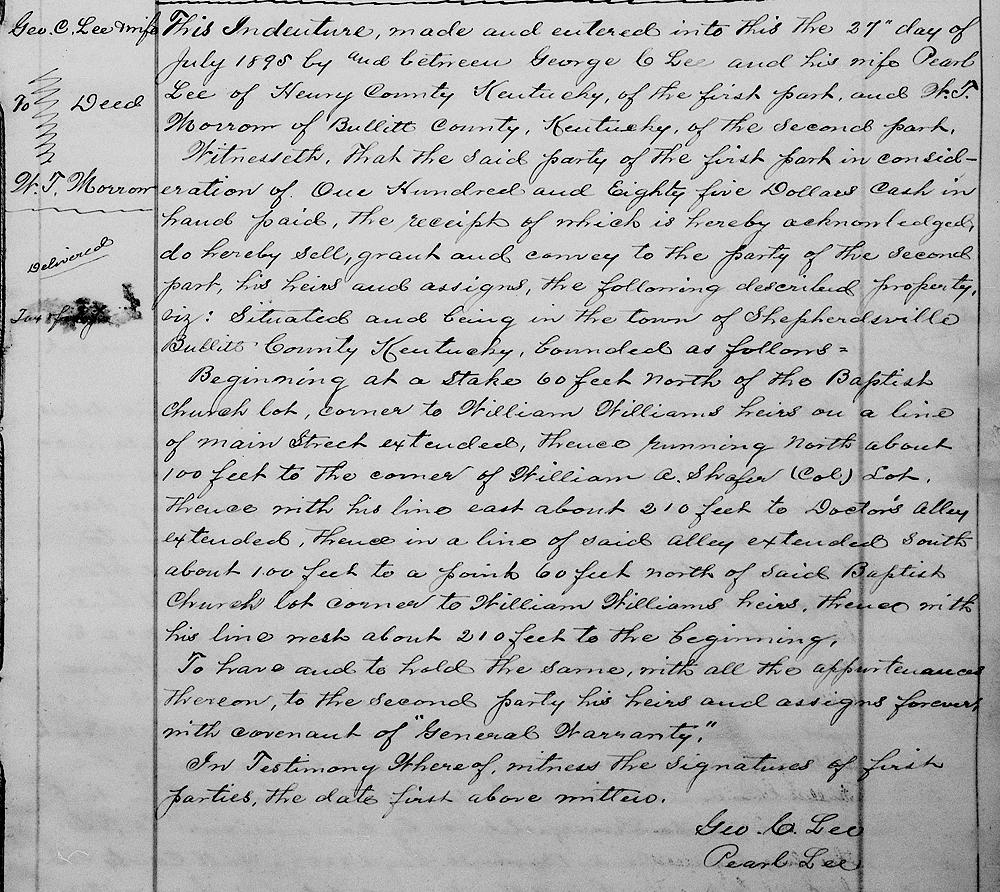 Geo. C. Lee & wife
To Deed
W. T. Morrow
Delivered
This Indenture, made and entered into this the 27" day of
July 1895 by and between George C Lee and his wife Pearl
Lee of Henry County Kentucky, of the first part, and W. T.
Morrow of Bullitt County, Kentucky, of the second part,
Witnesseth, That the said party of the first part in consid-
eration of One Hundred and Eighty five Dollars Cash in
hand paid, the receipt of which is hereby acknowledged,
do hereby sell, grant and convey to the party of the second
part, his heirs and assigns, the following described property,
viz: Situated and being in the town of Shepherdsville
Bullitt County Kentucky, bounded as follows=
Beginning at a stake 60 feet north of the Baptist
Church lot, corner to William Williams heirs on a line
of main Street extended, thence running north about
100 feet to the corner of William A. Shafer (Col.) Lot,
thence with his line east about 210 feet to Doctor's Alley
extended, thence in a line of said alley extended South
about 100 feet to a point 60 feet north of said Baptist
Church lot corner to William Williams heirs, thence with
his line west about 210 feet to the beginning,
To have and to hold the same, with all the appurtenances
thereon, to the second party his heirs and assigns forever,
with covenant of "General Warranty,"
In Testimony Whereof, witness the signatures of first
parties, the date first above written.
Geo. C. Lee
Pearl Lee